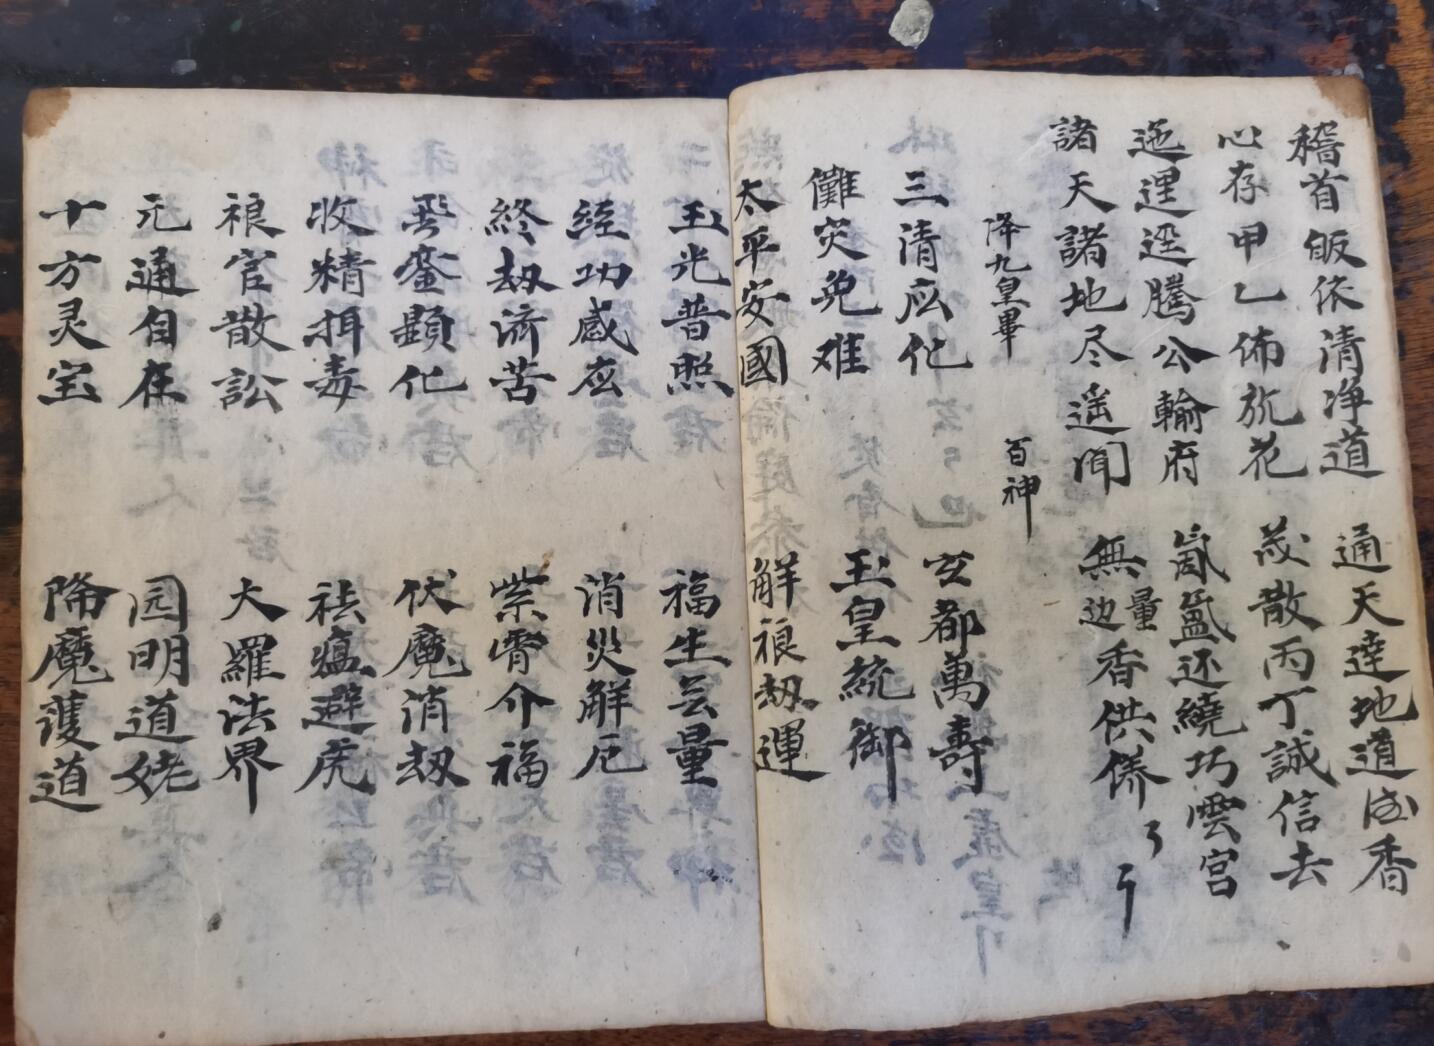 稽首皈依清净道 通天達地道德香
心存甲乙佈旂花 散丙丁誠信去
迤逕騰公輸府 氤氲还繞巧雲宮
諸天諸地尽遥聞 無量边香供俸
降九皇畢 百神
三清应化 玄都萬壽
儺灾免难 玉皇統御
太平安國 解禳劫運
玉光普照 福生无量
經功感应 消災解厄
終劫济苦 紫霄介福
显化 伏魔消劫
收精捐毒 祛瘟避虎
禳官散訟 大羅法界
元通自在 园明道姥
十方灵宝 降魔護道